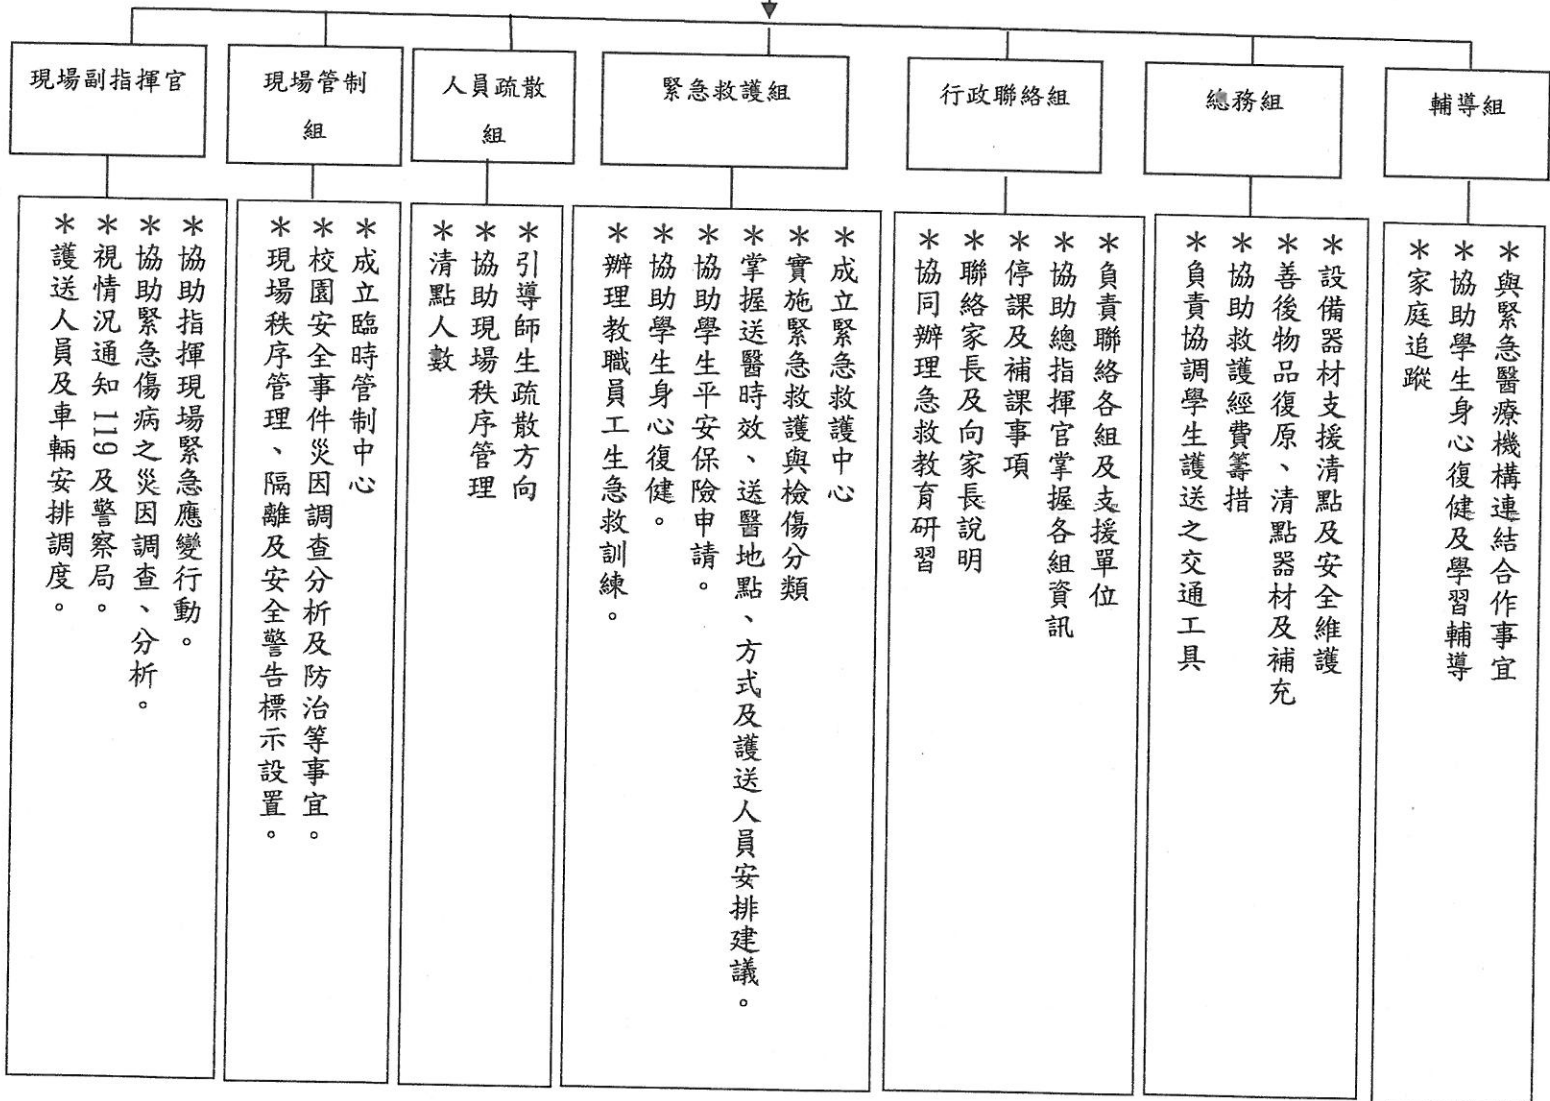 現場副指揮官
現場管制
組
人員疏散
組
緊急救護組
行政聯絡組
總務組
輔導組
＊協助指揮現場緊急應變行動。
＊協助緊急傷病之災因調查、分析。
＊視情況通知119及警察局。
＊護送人員及車輛安排調度。
＊成立臨時管制中心
＊校園安全事件災因調查分析及防治等事宜。
＊現場秩序管理、隔離及安全警告標示設置。
＊引導師生疏散方向
＊協助現場秩序管理
＊清點人數
＊成立緊急救護中心
＊實施緊急救護與檢傷分類
＊掌握送醫時效、送醫地點、方式及護送人員安排建議。
＊協助學生平安保險申請。
＊協助學生身心復健。
＊辦理教職員工生急救訓練。
＊負責聯絡各組及支援單位
＊協助總指揮官掌握各組資訊
＊停課及補課事項
＊聯絡家長及向家長說明
＊協同辦理急救教育研習
＊設備器材支援清點及安全維護
＊善後物品復原、清點器材及補充
＊協助救護經費籌措
＊負責協調學生護送之交通工具
＊與緊急醫療機構連結合作事宜
＊協助學生身心復健及學習輔導
＊家庭追蹤